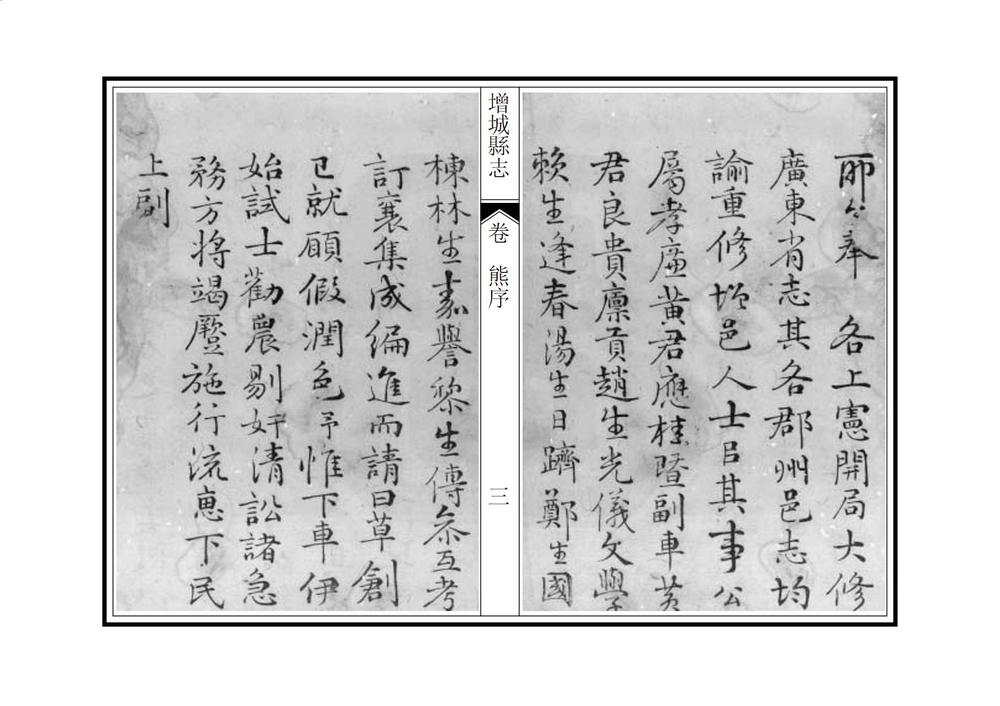 耶茲奉　各上憲開局大修
廣東省志其各郡州邑志均
諭重修增邑人士㠯其事公
屬孝廉黃君應桂暨副車黃
君良貴廩貢趙生光儀文學
賴生逢春湯生日躋鄭生國
增城縣志
卷　熊序
三
棟林生嘉譽黎生傳叅互考
訂裒集成編進而請曰草創
已就願假潤色予惟下車伊
始試士勸農剔奸清訟諸急
務方將竭蹷施行流惠下民
上副